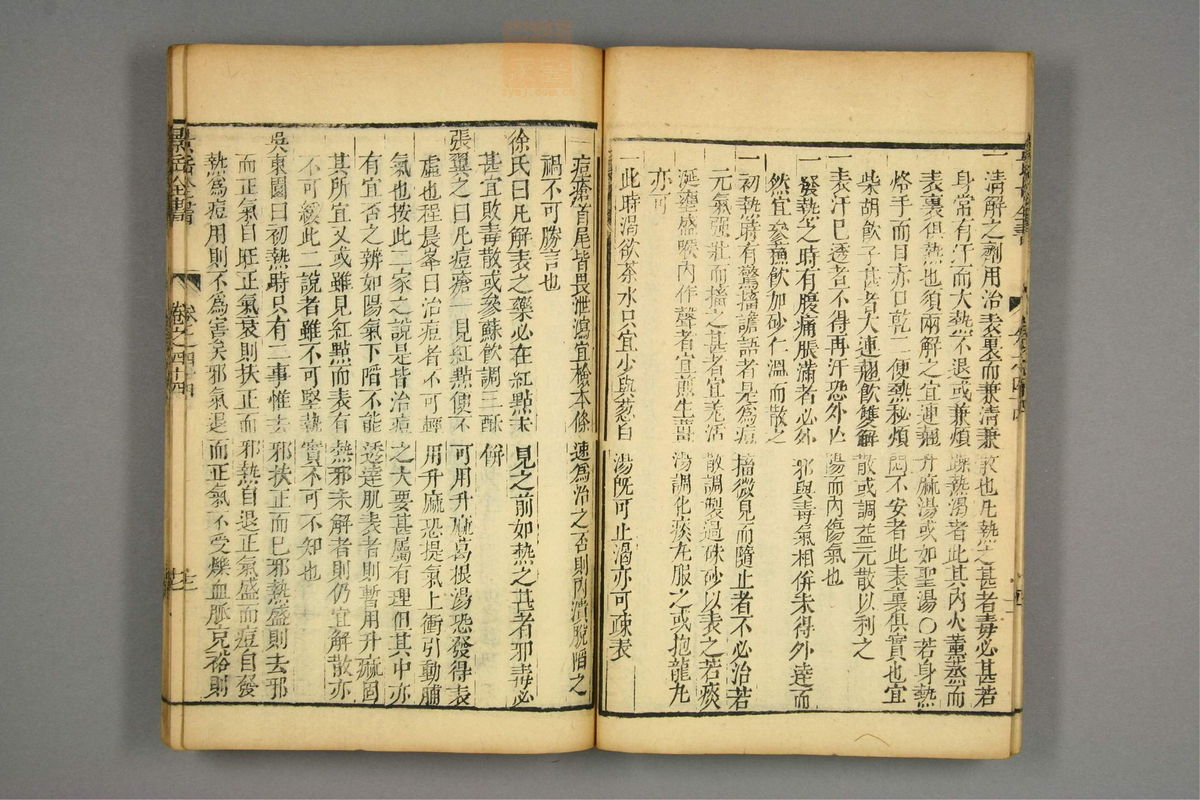 一清解之劑用治表裏而兼清兼散也凡熱之甚者毒必甚若
身常有汗而大熱不退或兼煩躁熱渴者此其內火薰蒸而
表裏俱熱也須兩解之宜連翹升麻湯或如聖湯○若身熱
烙手而目赤口乾二便熱秘煩悶不安者此表裏俱實也宜
柴胡飲子甚者大連翹飲雙解散或調益元散以利之
表汗已透者不得再汗恐外亡陽而內傷氣也
一發熱之時有腹痛脹滿者必外邪與毒氣相併未得外達而
然宜參蘇飲加砂仁溫而散之
一初熱時有驚搐譫語者是為痘搐微見而隨止者不必治若
元氣强壯而搐之甚者宜羌活散調製過硃砂以表之若痰
涎壅盛喉內作聲者宜煎生薑湯調化痰丸服之或抱龍丸
亦可
一此時渴欲茶水只宜少與葱白湯既可止渴亦可疎表
一痘瘡首尾皆畏泄瀉宜檢本條速為治之否則內潰脫陷之
禍不可勝言也
徐氏曰凡解表之藥必在紅點未見之前如熱之甚者邪毒必
甚宜敗毒散或參蘇飲調三酥餅
張翼之曰凡痘瘡一見紅點便不可用升麻葛根湯恐發得表
虛也程晨峯曰治痘者不可輕用升麻恐提氣上衝引動肺
氣也按此二家之說是皆治痘之大要甚屬有理但其中亦
有宜否之辨如陽氣下陷不能透達肌表者則暫用升麻固
其所宜又或雖見紅點而表有熱邪未解者則仍宜解散亦
不可緩此二說者雖不可堅執實不可不知也
吳東園曰初熱時只有二事惟去邪扶正而已邪熱盛則去邪
而正氣自旺正氣衰則扶正而邪熱自退正氣盛而痘自發
熱為痘用則不為害矣邪氣退而正氣不受爍血脉克裕則
景岳全書
卷之四十四